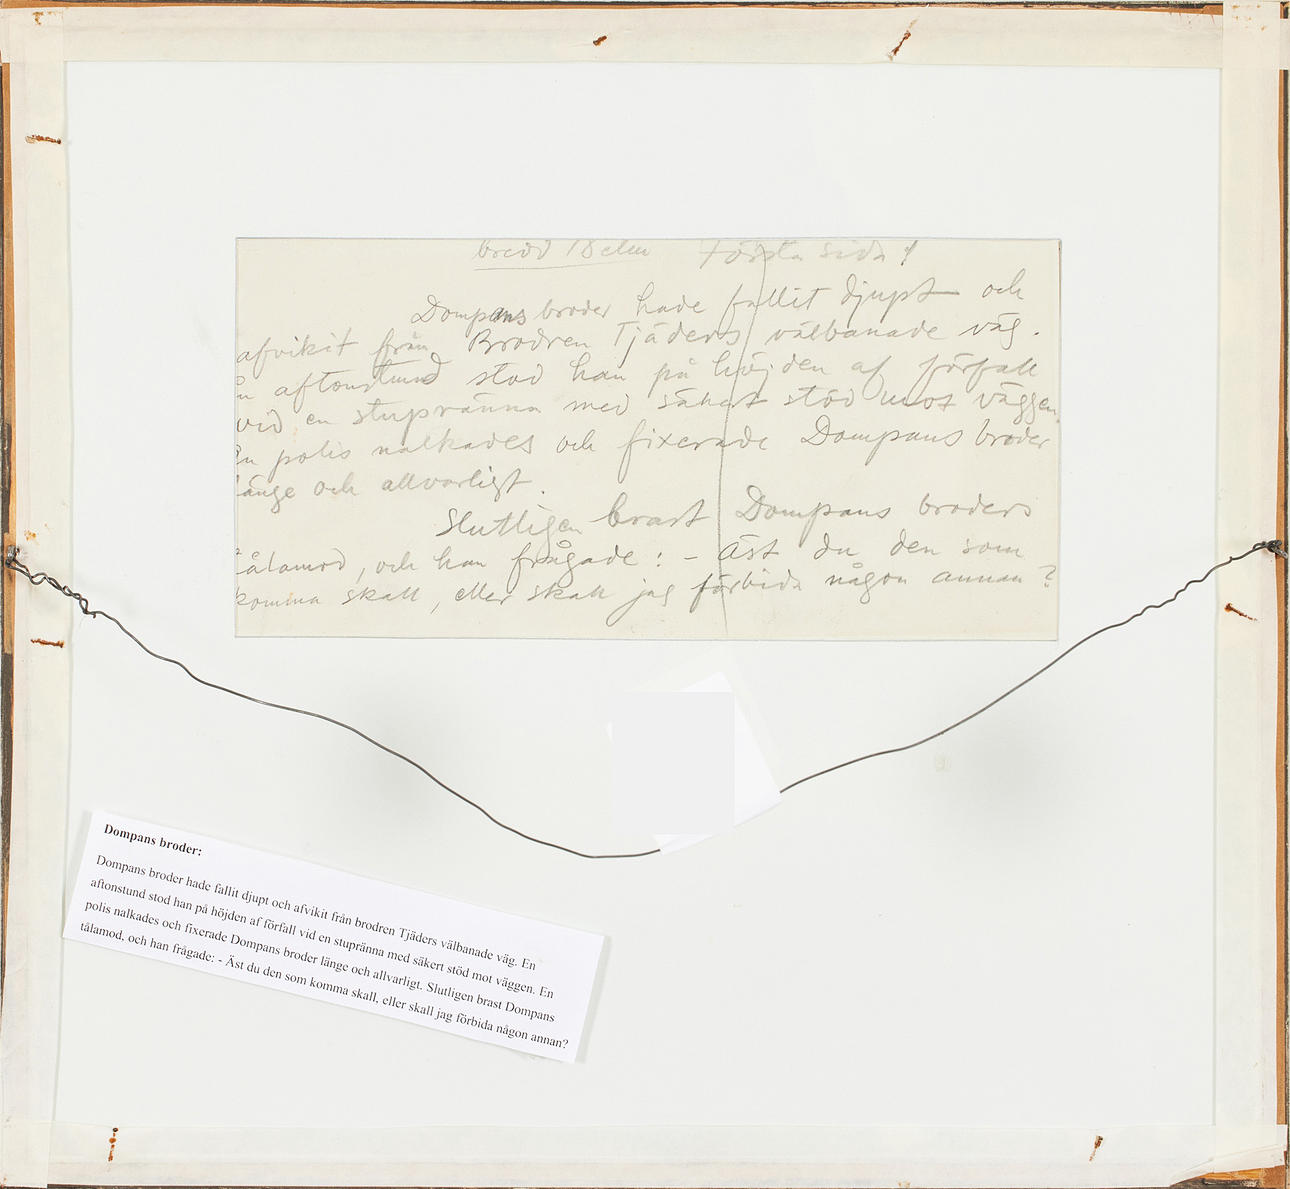 bredd 18 ctm Första sida
Dompans broder hade fallit djupt och
afvikit från Brodren Tjäders välbanade väg.
n aftonstund stod han på höjden af förfall
vid en stupränna med säkert stöd mot väggen.
En polis nalkades och fixerade Dompans broder
länge och allvarligt.
Slutligen brast Dompans broders
tålamod, och han frågade: - Äst du den som
komma skall, eller skall jag förbida någon annan?
Dompans broder:
Dompans broder hade fallit djupt och afvikit från brodren Tjäders välbanade väg. En
aftonstund stod han på höjden af förfall vid en stupränna med säkert stöd mot väggen. En
polis nalkades och fixerade Dompans broder länge och allvarligt. Slutligen brast Dompans
tålamod, och han frågade: - Äst du den som komma skall, eller skall jag förbida någon annan?